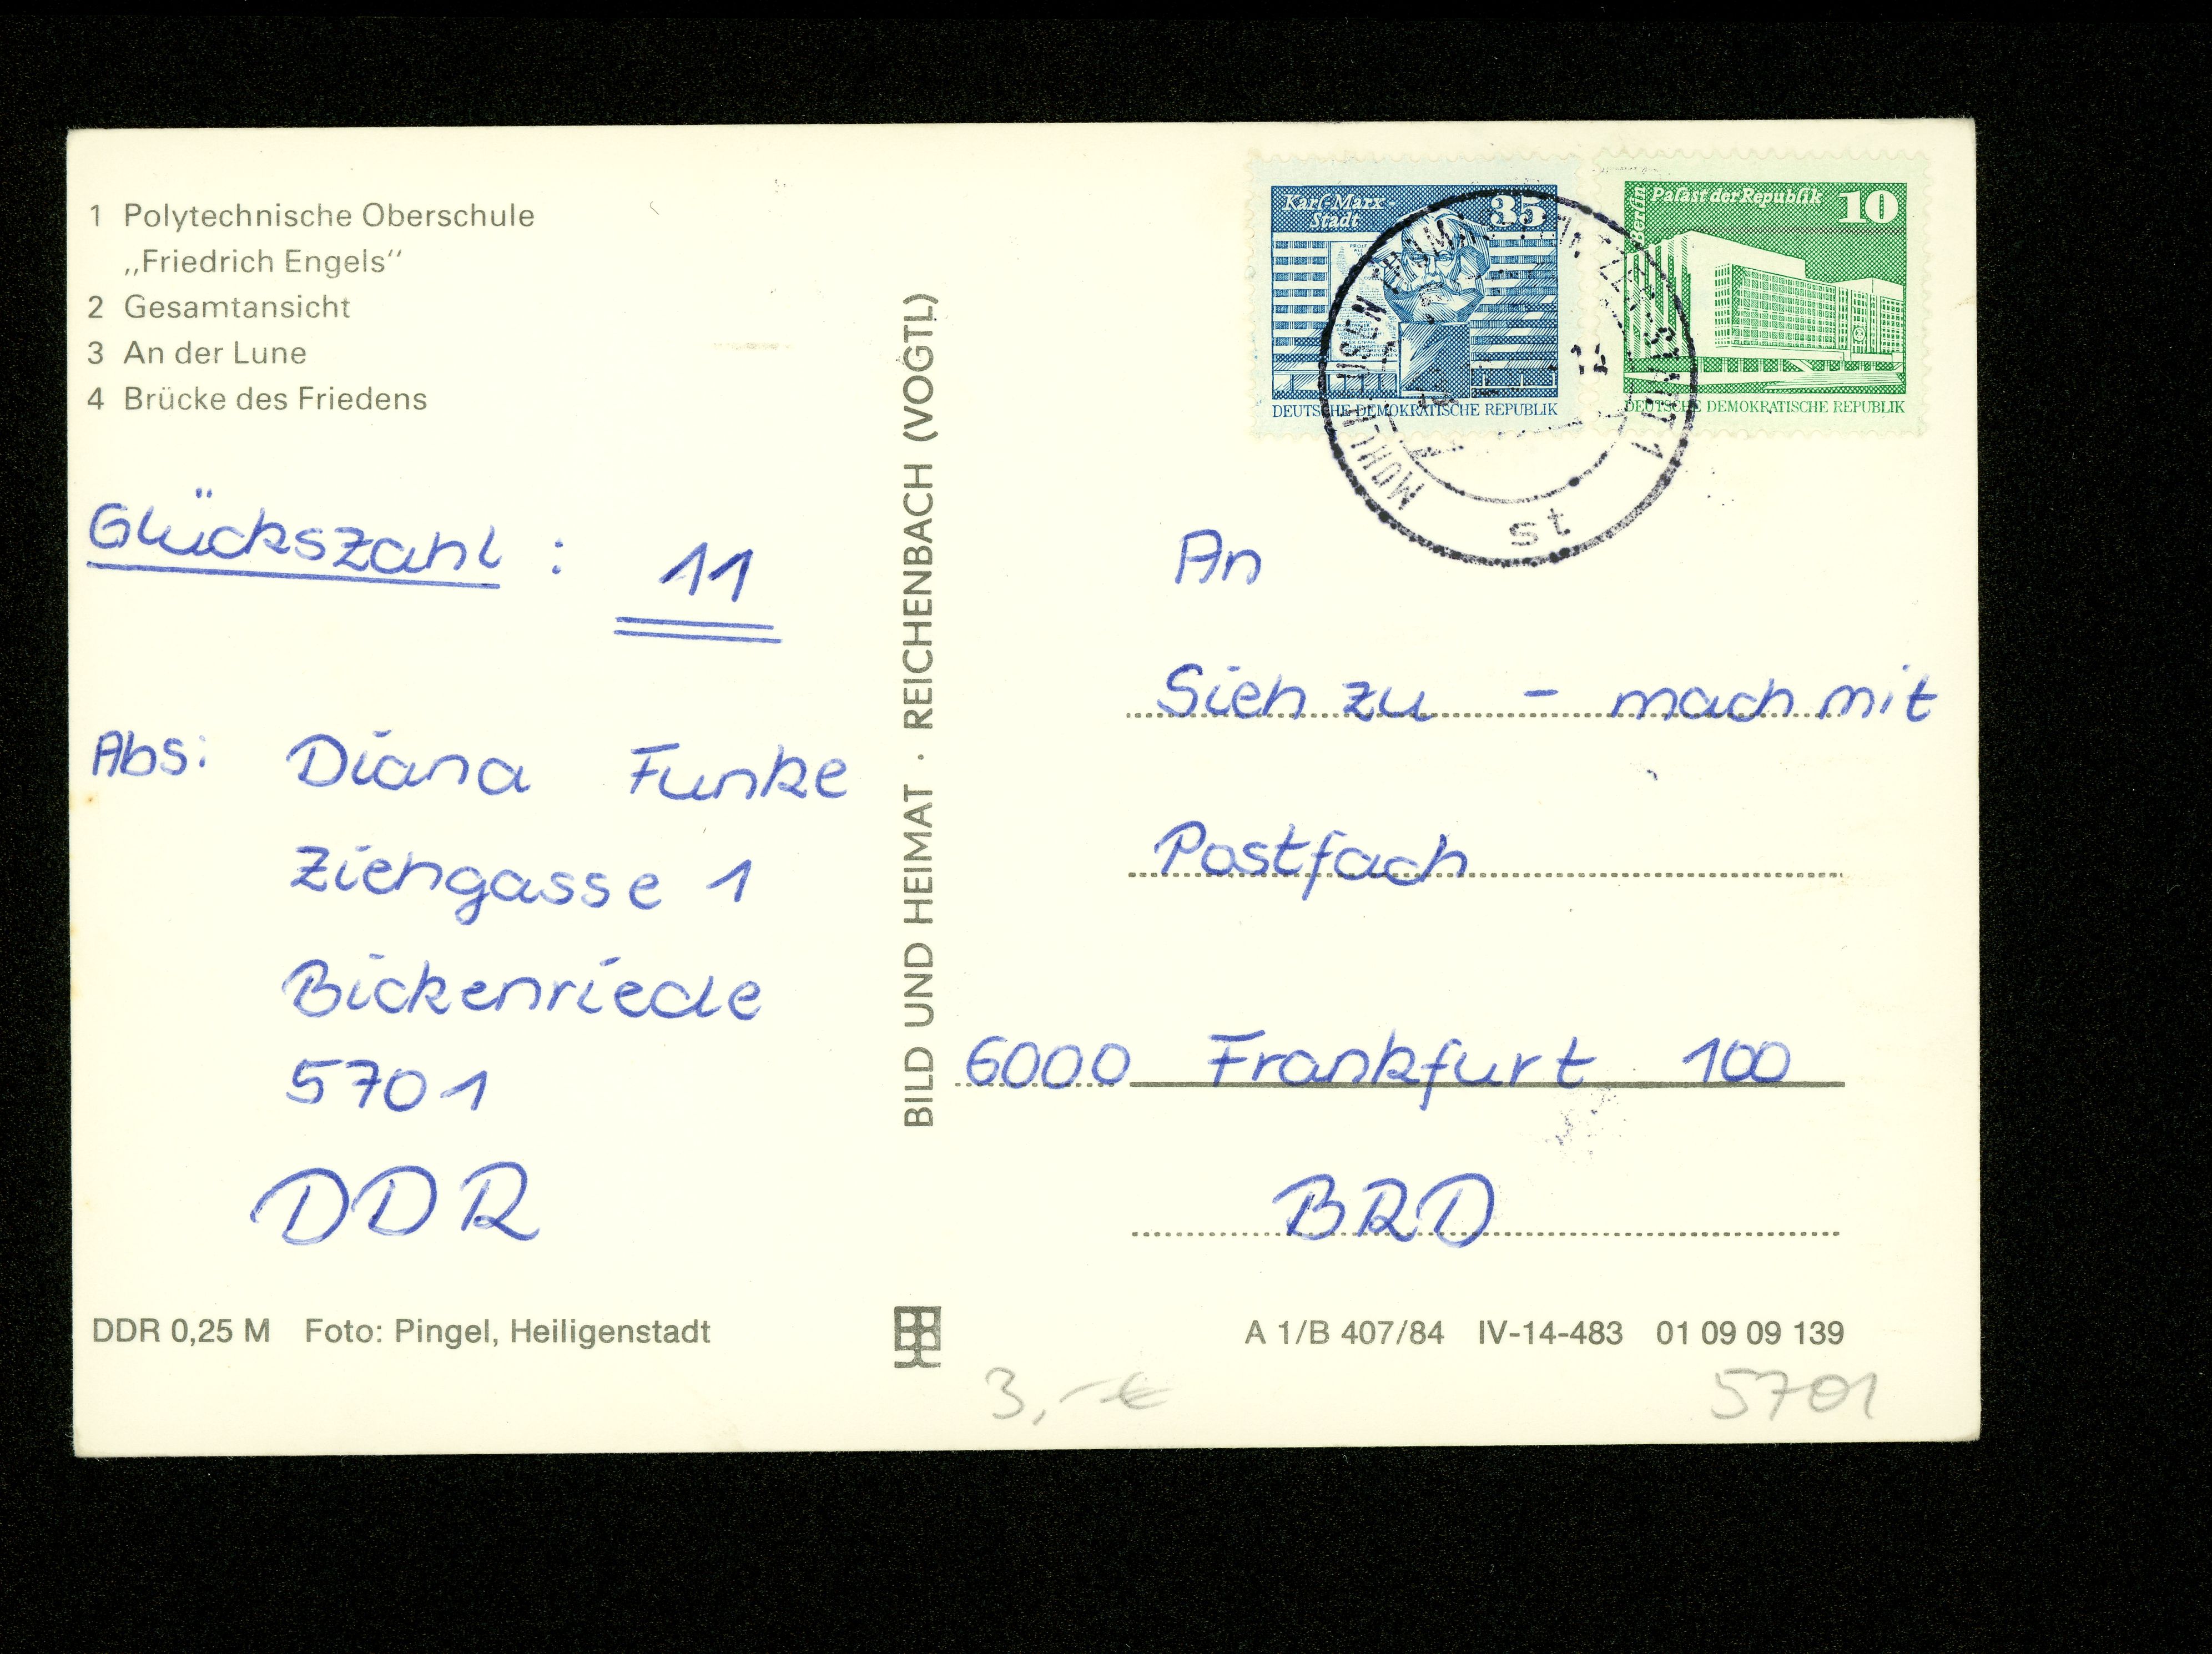 1 Polytechnische Oberschule
„Friedrich Engels“
2 Gesamtansicht
3 An der Lune
4 Brücke des Friedens
Glückszahl : 11
Abs: Diana Funke
Ziehgasse 1
Bickenriede
5701
DDR
DDR 0,25 M Foto: Pingel, Heiligenstadt
BILD UND HEIMAT · REICHENBACH (VOGTL)
Karl-Marx-
Stadt
35
DEUTSCHE DEMOKRATISCHE REPUBLIK
Berlin
Palast der Republik
10
DEUTSCHE DEMOKRATISCHE REPUBLIK
st
An
Sieh zu - mach mit
Postfach
6000 Frankfurt 100
BRD
A 1/B 407/84 IV-14-483 01 09 09 139
3,-€
5701